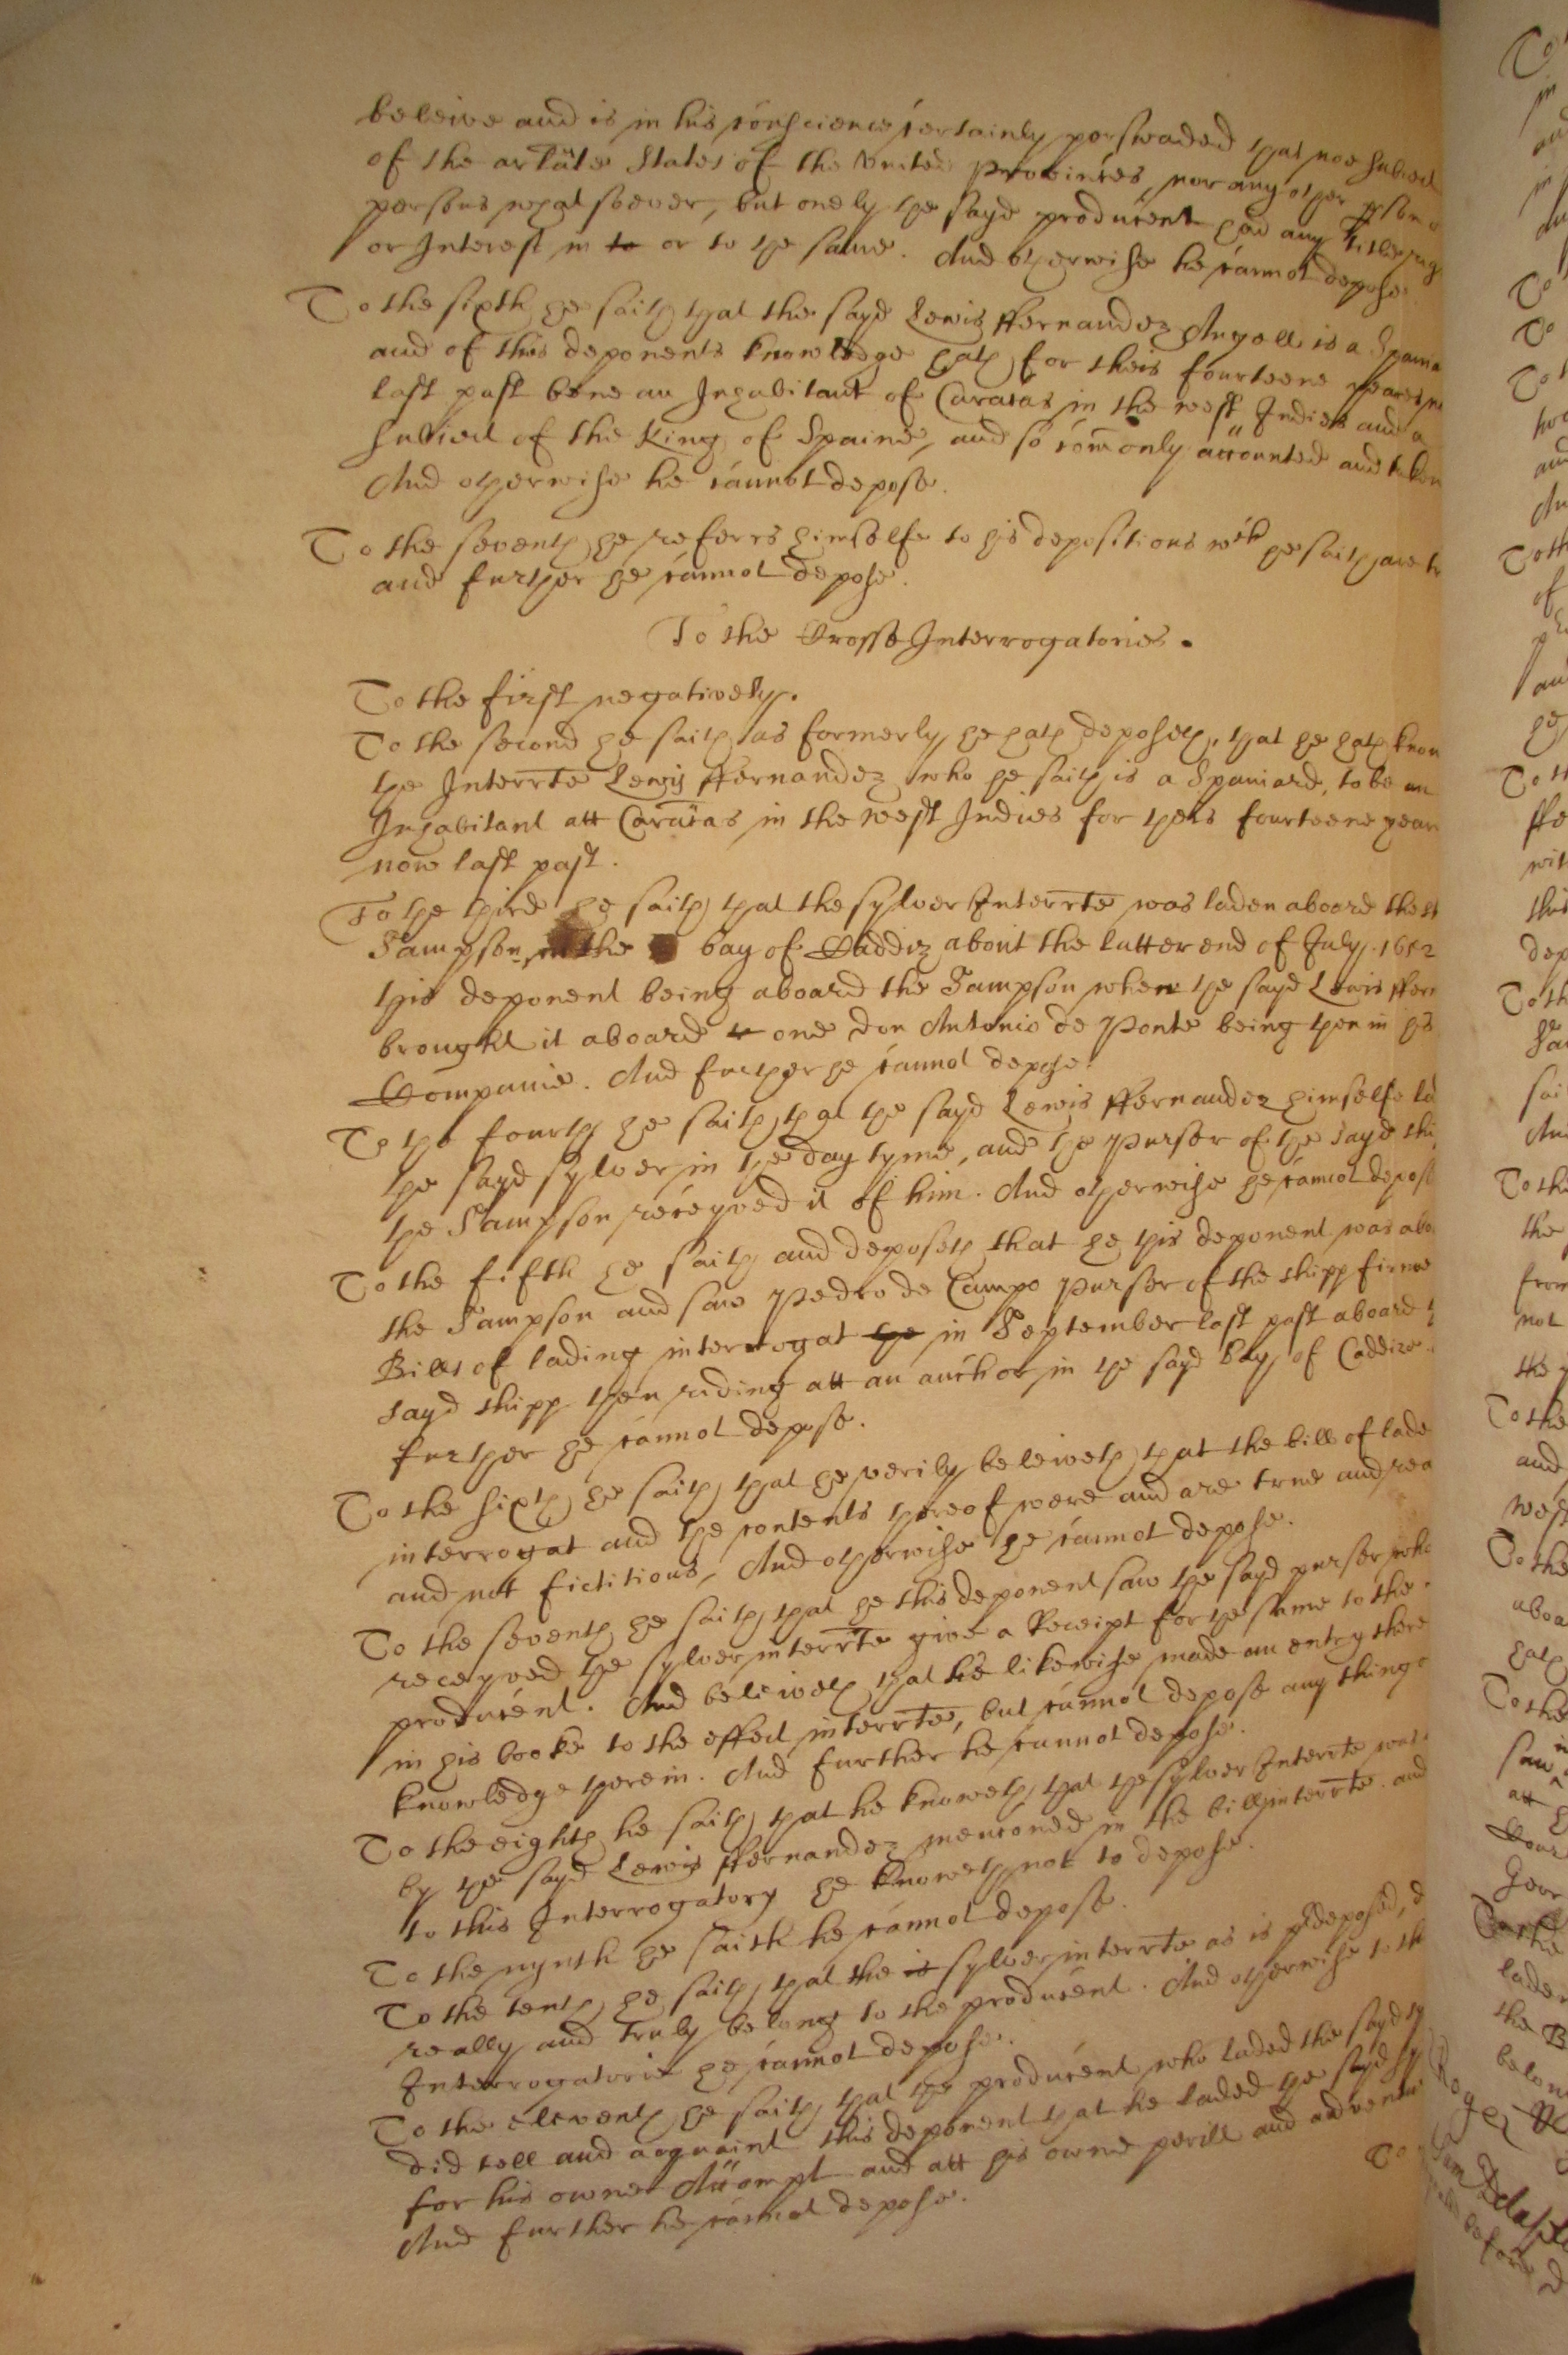 beleive and is in his conscience certainly perswaded that noe Subiect
of the arlate States of the United Provinces, nor any other pson
persons whatsoever, but onely the sayd producent had any title
or Interest in to or to the same. And otherwise he cannot depose.
To the sixth he saith that the sayd Lewis ffernandez Angell is a Spania
and of this deponents knowledge hath for theis fourteene yeares
last past bene an Inhabitant of Caracas in the west Indies and a
Subiect of the King of Spaine, and so comonly accounted and taken
And otherwise he cannot depose.
To the seventh he referrs himselfe to his depositions wch he saith are tr
and further he cannot depose.
To the Crosse Interrogatories.
To the first negatively.
To the second he saith as formerly he hath deposeth, that he hath know
the Interrte Lewis ffernandez who he saith is a Spaniard, to be an
Inhabitant att Caracas in the west Indies for theis fourteene year
now last past.
To the third he saith that the sylver Interrte was laden aboard the
Sampson in the bay of Caddiz about the latter end of July. 1652
this deponent being aboard the Sampson when the sayd Lewis ffern
brought it aboard one don Antonio de Ponte being then in his
Companie. And further he cannot depose.
To the fourth he saith that the sayd Lewis ffernandez himselfe la
the sayd sylver in the day tyme, and the Purser of the sayd shi
the Sampson receyved it of him. And otherwise he cannot depose
To the fifth he saith and deposeth that he this deponent was abo
the Sampson and saw Pedro de Campo Purser of the shipp firme
Bills of lading interrogat the in September last past aboard
sayd shipp then riding att an anchor in the sayd bay of Caddize.
further he cannot depose.
To the sixth he saith that he verily beleiveth that the bill of lade
interrogat and the contents thereof were and are true and rea
and not fictitious, And otherwise he cannot depose.
To the seventh he saith that he this deponent saw the sayd purser who
receyved the sylver interrte give a Receipt for the same to the
producent. And beleiveth that he likewise made an entry there
in his booke to the effect interrte, but cannot depose any thing
knowledge therein. And further he cannot depose.
To the eighth he saith that he knoweth that the sylver Interrte was
by the sayd Lewis ffernandez menconed in the bill interrte. and
to this Interrogatory he knoweth not to depose.
To the nynth he saith he cannot depose.
To the tenth he saith that the it sylver interrte as is pdeposed, d
really and truly belong to the producent. And otherwise to th
Interrogatorie he cannot depose.
To the eleventh he saith that the producent who laded the sayd sy
did tell and acquaint this deponent that he laded the sayd sy
for his owne Accompt and att his owne perill and adventu
And further he cannot depose.
To